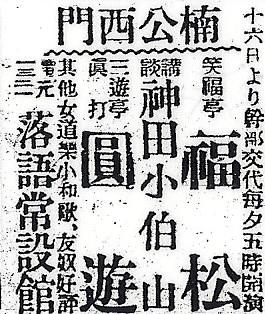 十六日より幹部交代每夕五時開演
楠公西門
笑福亭
福松
講談
神田小伯山
三遊亭
眞打
圓遊
其他女道樂小和歌、友奴好評
電元
落語常設館